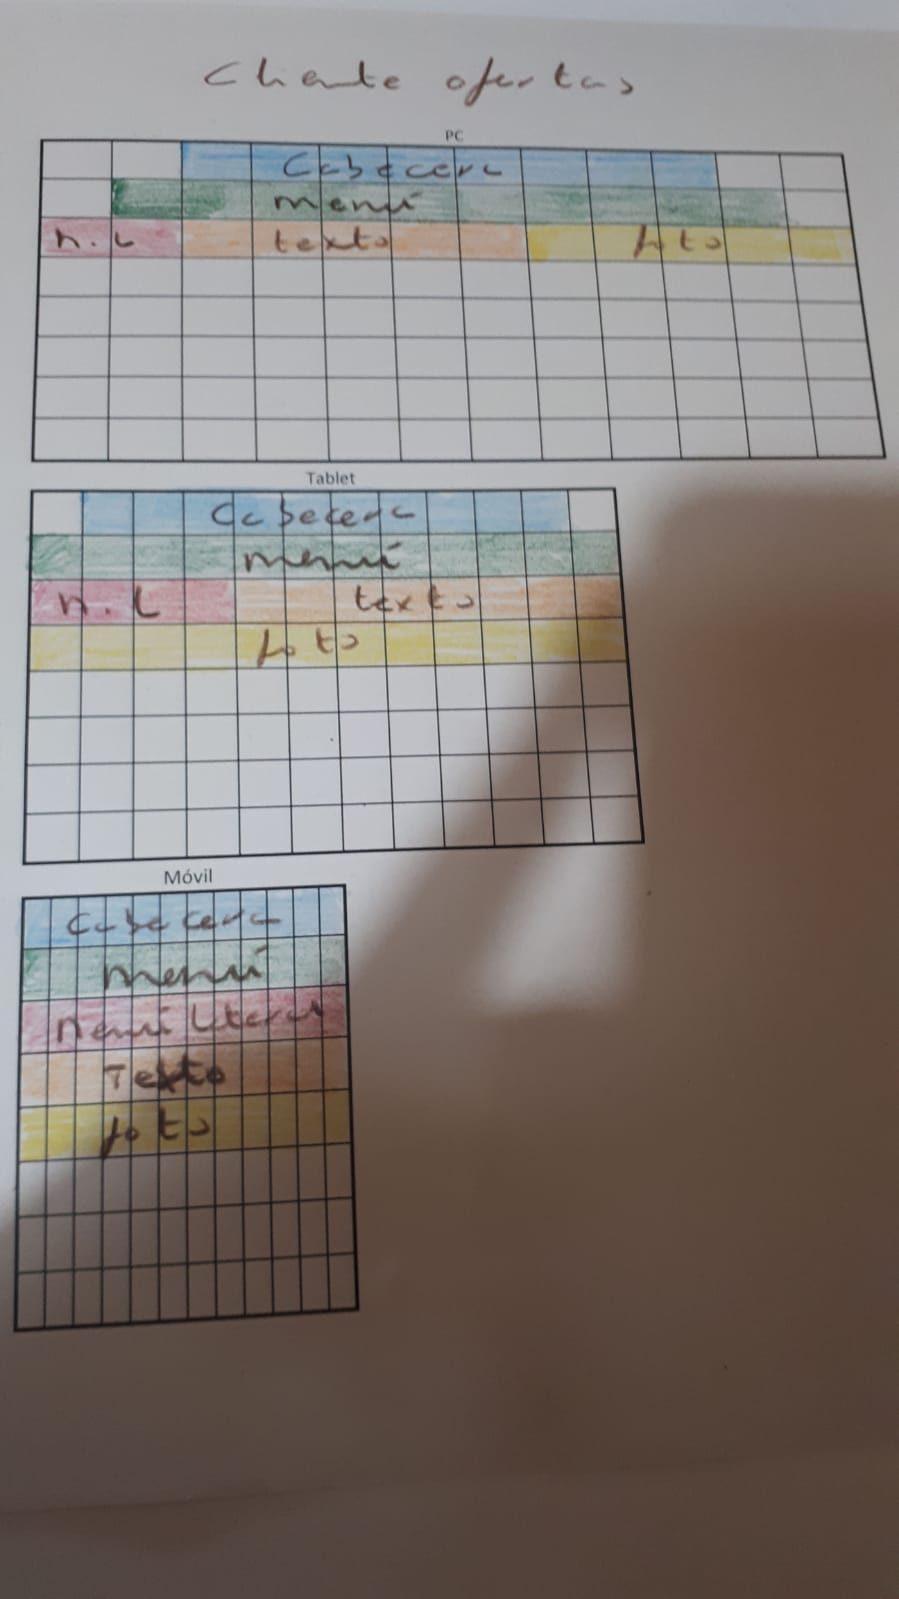 Cliente ofertas
PC
Cabecera
menú
n.L texto foto
Tablet
Cabecera
menú
n.L texto
foto
Móvil
Cabecera
menú
Menú Lateral
Texto
foto